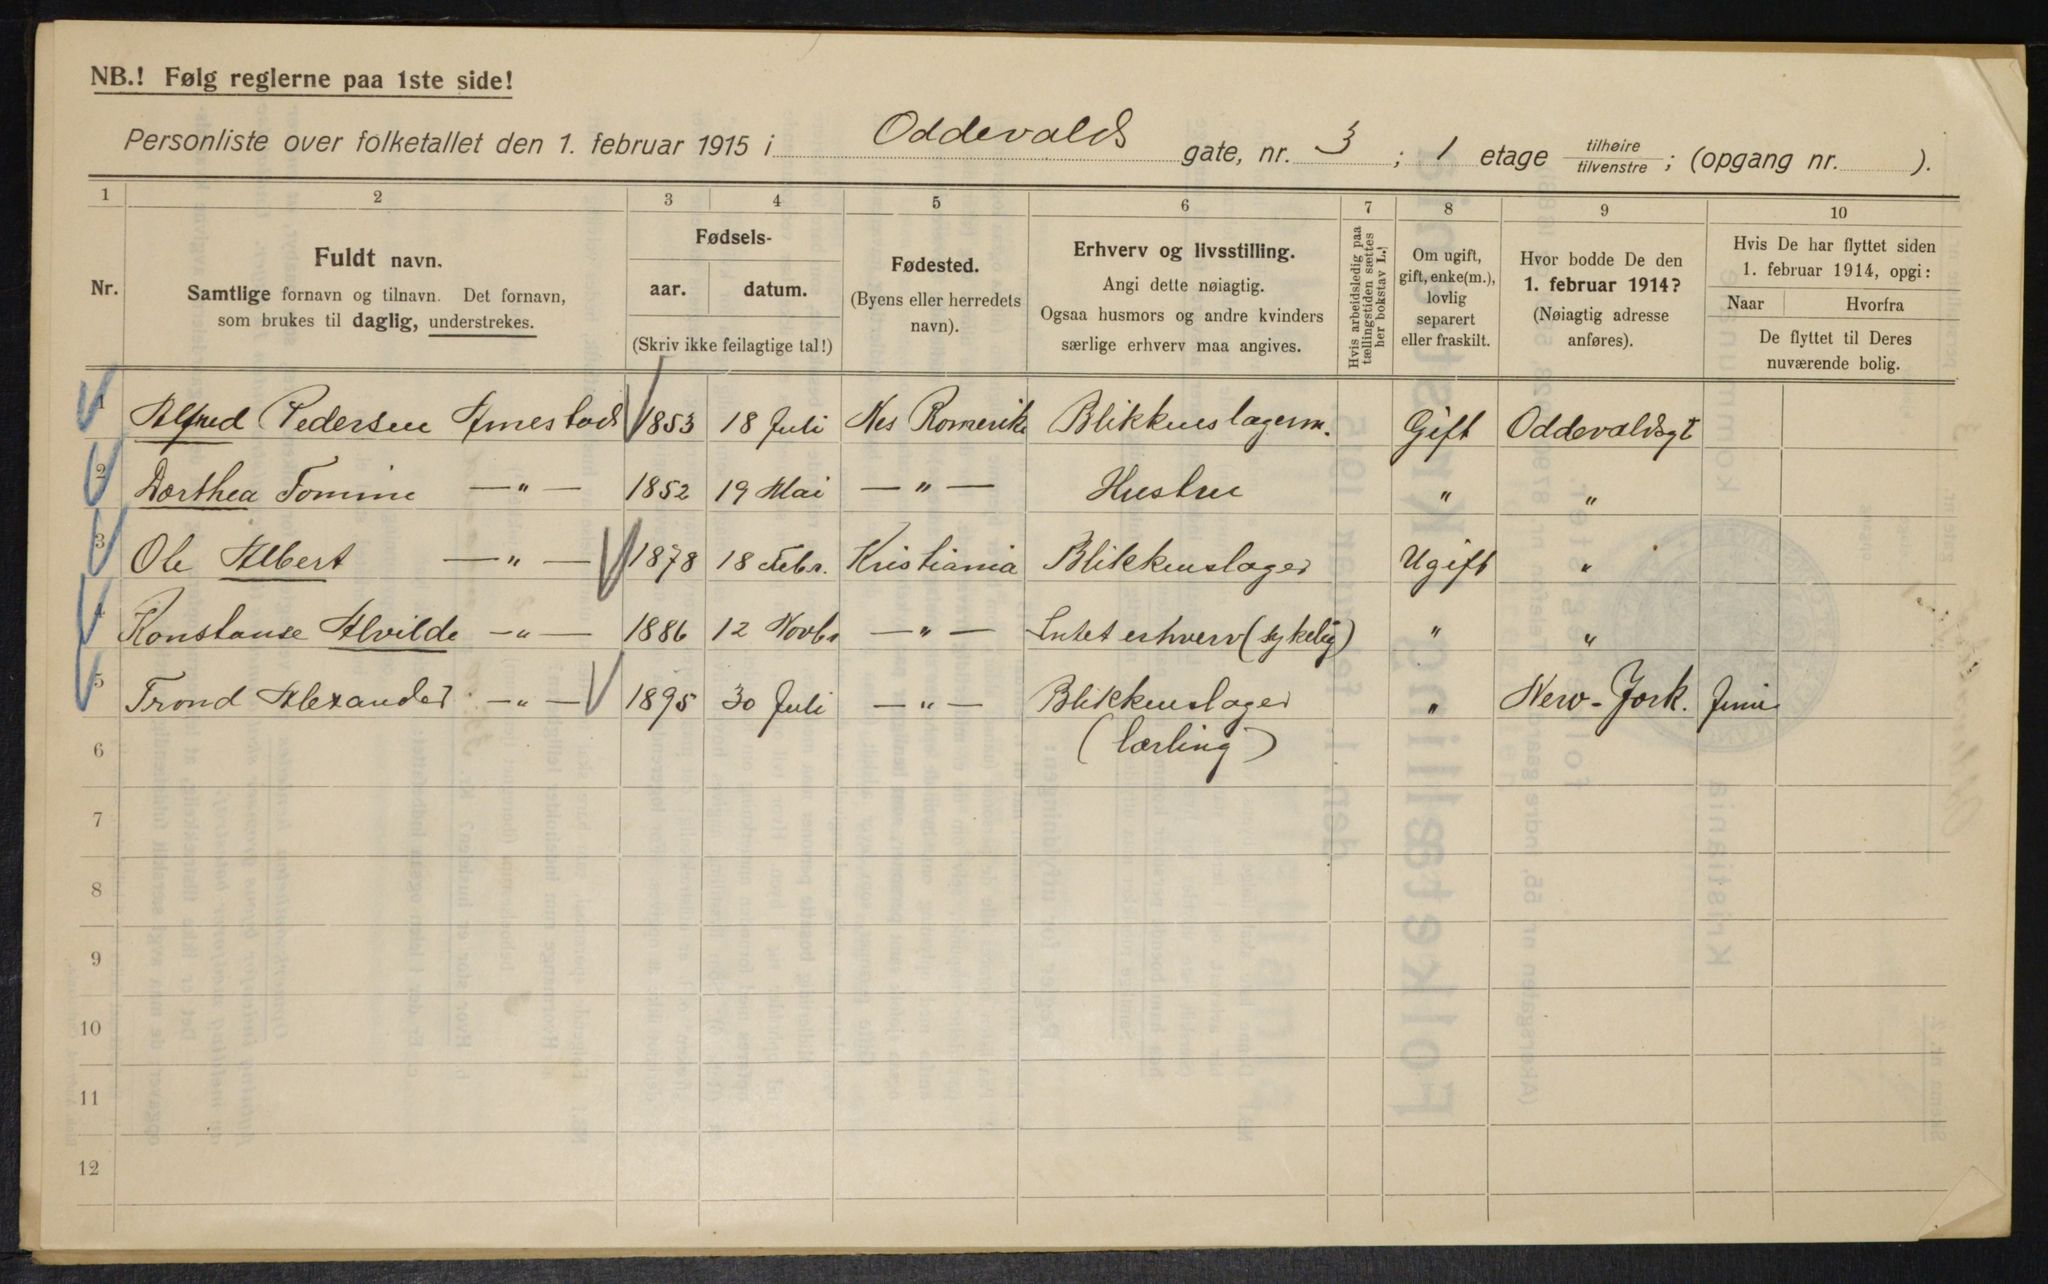 NB.! Følg reglerne paa 1ste side!
Personliste over folketallet den 1. februar 1915 i Oddevalds gate, nr. 3 ; 1 etage tilhøire tilvenstre ; (opgang nr. ).
1 2 3 4 5 6 7 8 9 10
Nr.
Fuldt navn.
Samtlige fornavn og tilnavn. Det fornavn,
som brukes til daglig, understrekes.
Fødsels-
aar. datum.
(Skriv ikke feilagtige tal!)
Fødested.
(Byens eller herredets
navn).
Erhverv og livsstilling.
Angi dette nøiagtig.
Ogsaa husmors og andre kvinders
særlige erhverv maa angives.
Hvis arbeidsledig paa
tællingstiden sættes
her bokstav L.
Om ugift,
gift, enke(m.),
lovlig
separert
eller fraskilt.
Hvor bodde De den
1. februar 1914?
(Nøiagtig adresse
anføres).
Hvis De har flyttet siden
1. februar 1914, opgi:
Naar Hvorfra
De flyttet til Deres
nuværende bolig.
1 Alfred Pedersen Amestad 1853 18 Juli Nes Romerike Blikkenslagerm. Gift Oddevaldsgt
2 Dorthea Tomine —„— 1852 19 Mai —„— Hustru „ „
3 Ole Albert —„— 1878 18 Febr. Kristiania Blikkenslager Ugift „
4 Konstanse Alvilde —„— 1886 12 Novbr —„— Intet erhverv (sykelig) „ „
5 Trond Alexander —„— 1895 30 Juli —„— Blikkenslager „ New-Jork. Juni
(lærling)
6
7
8
9
10
11
12